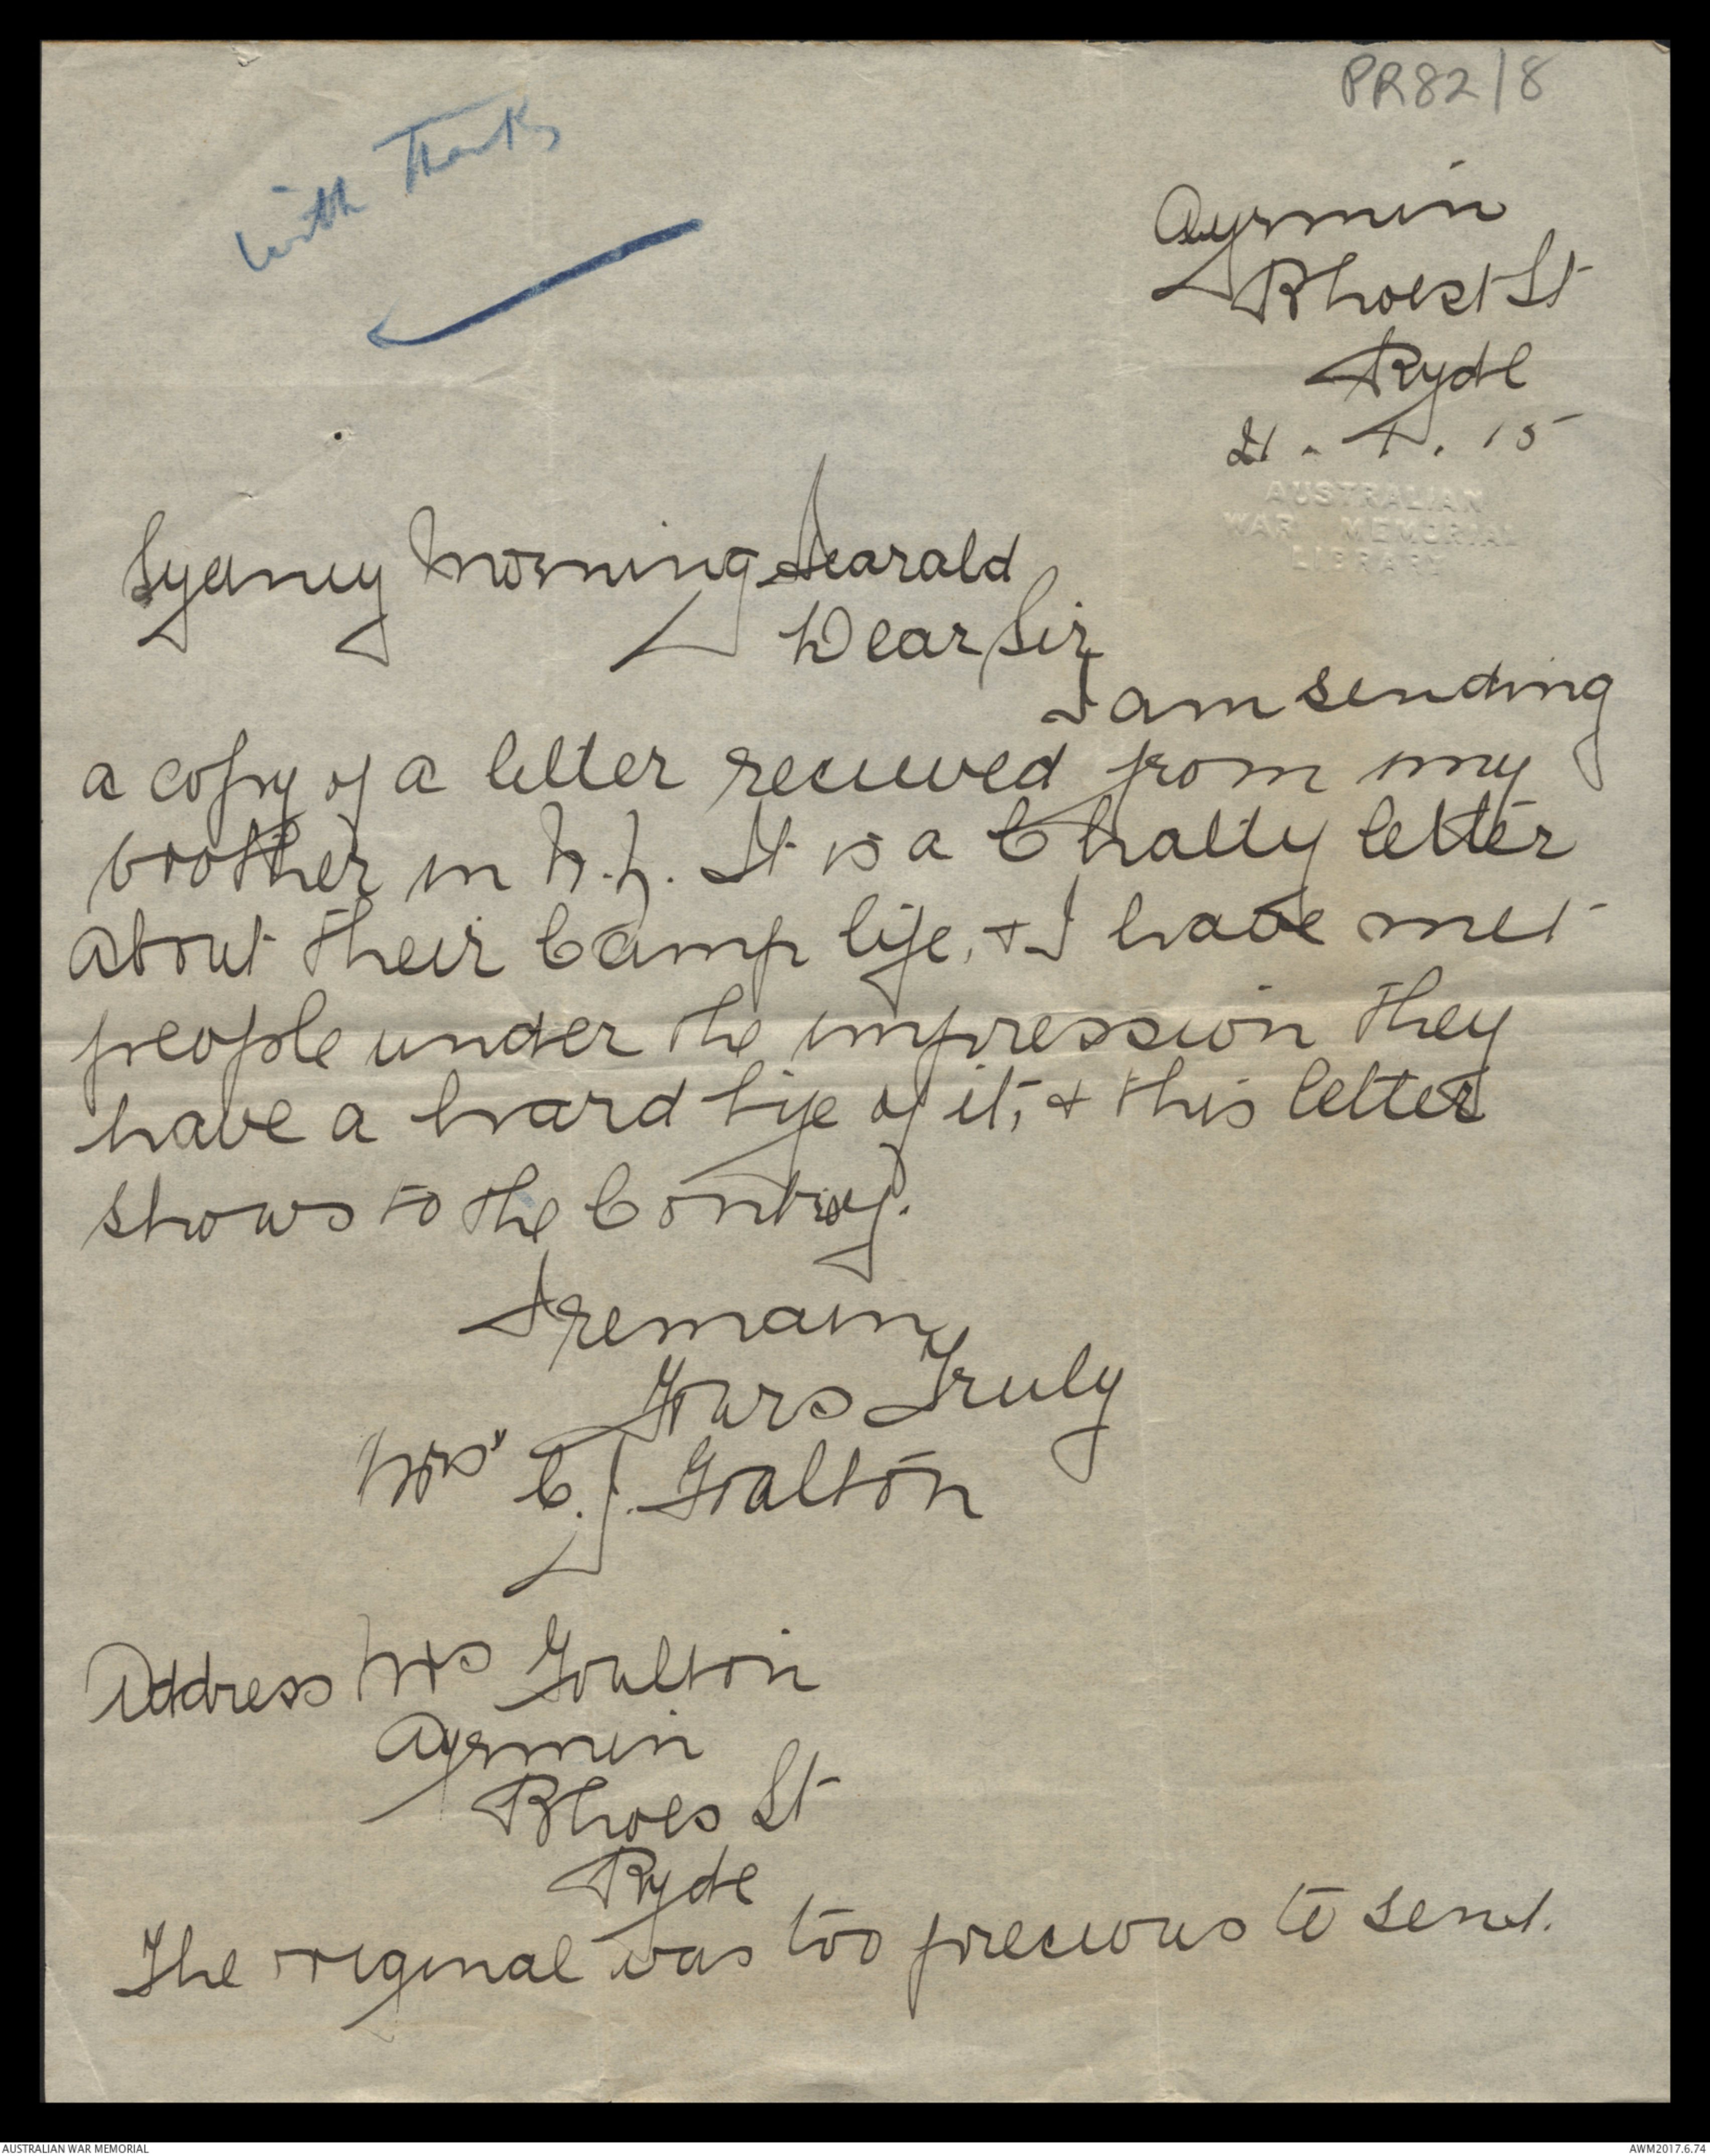 PR82/8
With Thanks
Ayrmin
Rhoest St
Ryde
21. 1. 15
AUSTRALIAN
WAR MEMORIAL
LIBRARY
Sydney Morning Hearald
Dear Sir
I am sending
a copy of a letter recieved from my
brother in N.G. It is a Chatty letter
about their Camp life, & I have met
people under the impression they
have a hard life of it, & this letter
shows to the Contray.
I remain
Yours Truly
Mrs C.J. Goalton
Address Mrs Goulton
Ayrmin
Rhoes St
Ryde
The original was too precious to send.
AUSTRALIAN WAR MEMORIAL
AWM2017.6.74